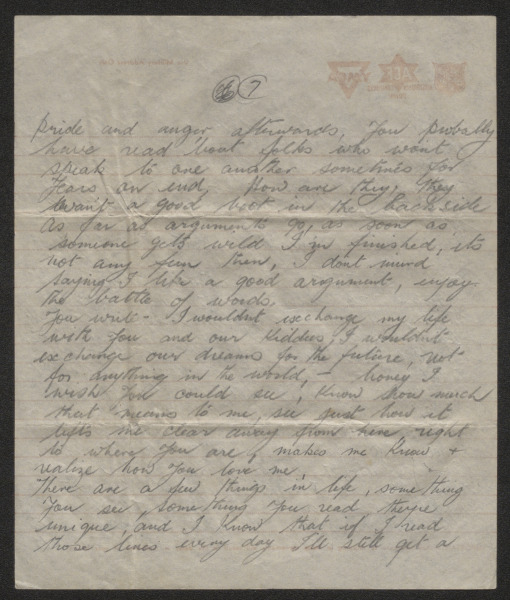 7
pride and anger, afterwards, You probally
have read 'bout folks who wont
speak to one another sometimes for
Years on end, How are they, They
want a good boot in the backside
As far as arguments go, as soon as
someone gets wild I'm finished, its
not any fun then, I dont mind
saying I like a good argument, enjoy
the battle of words.
You write - I wouldnt exchange my life
with You and our Kiddies, I wouldnt
exchange our dreams for the future, not
for anything in the world, - honey I
wish You could see, Know how much
that means to me, see just how it
lifts me clear away from here right
to where You are & makes me Know +
realize how You love me.
There are a few things in life, something
You see, something You read theyre
unique, and I Know that if I read
those lines every day I'll still get a